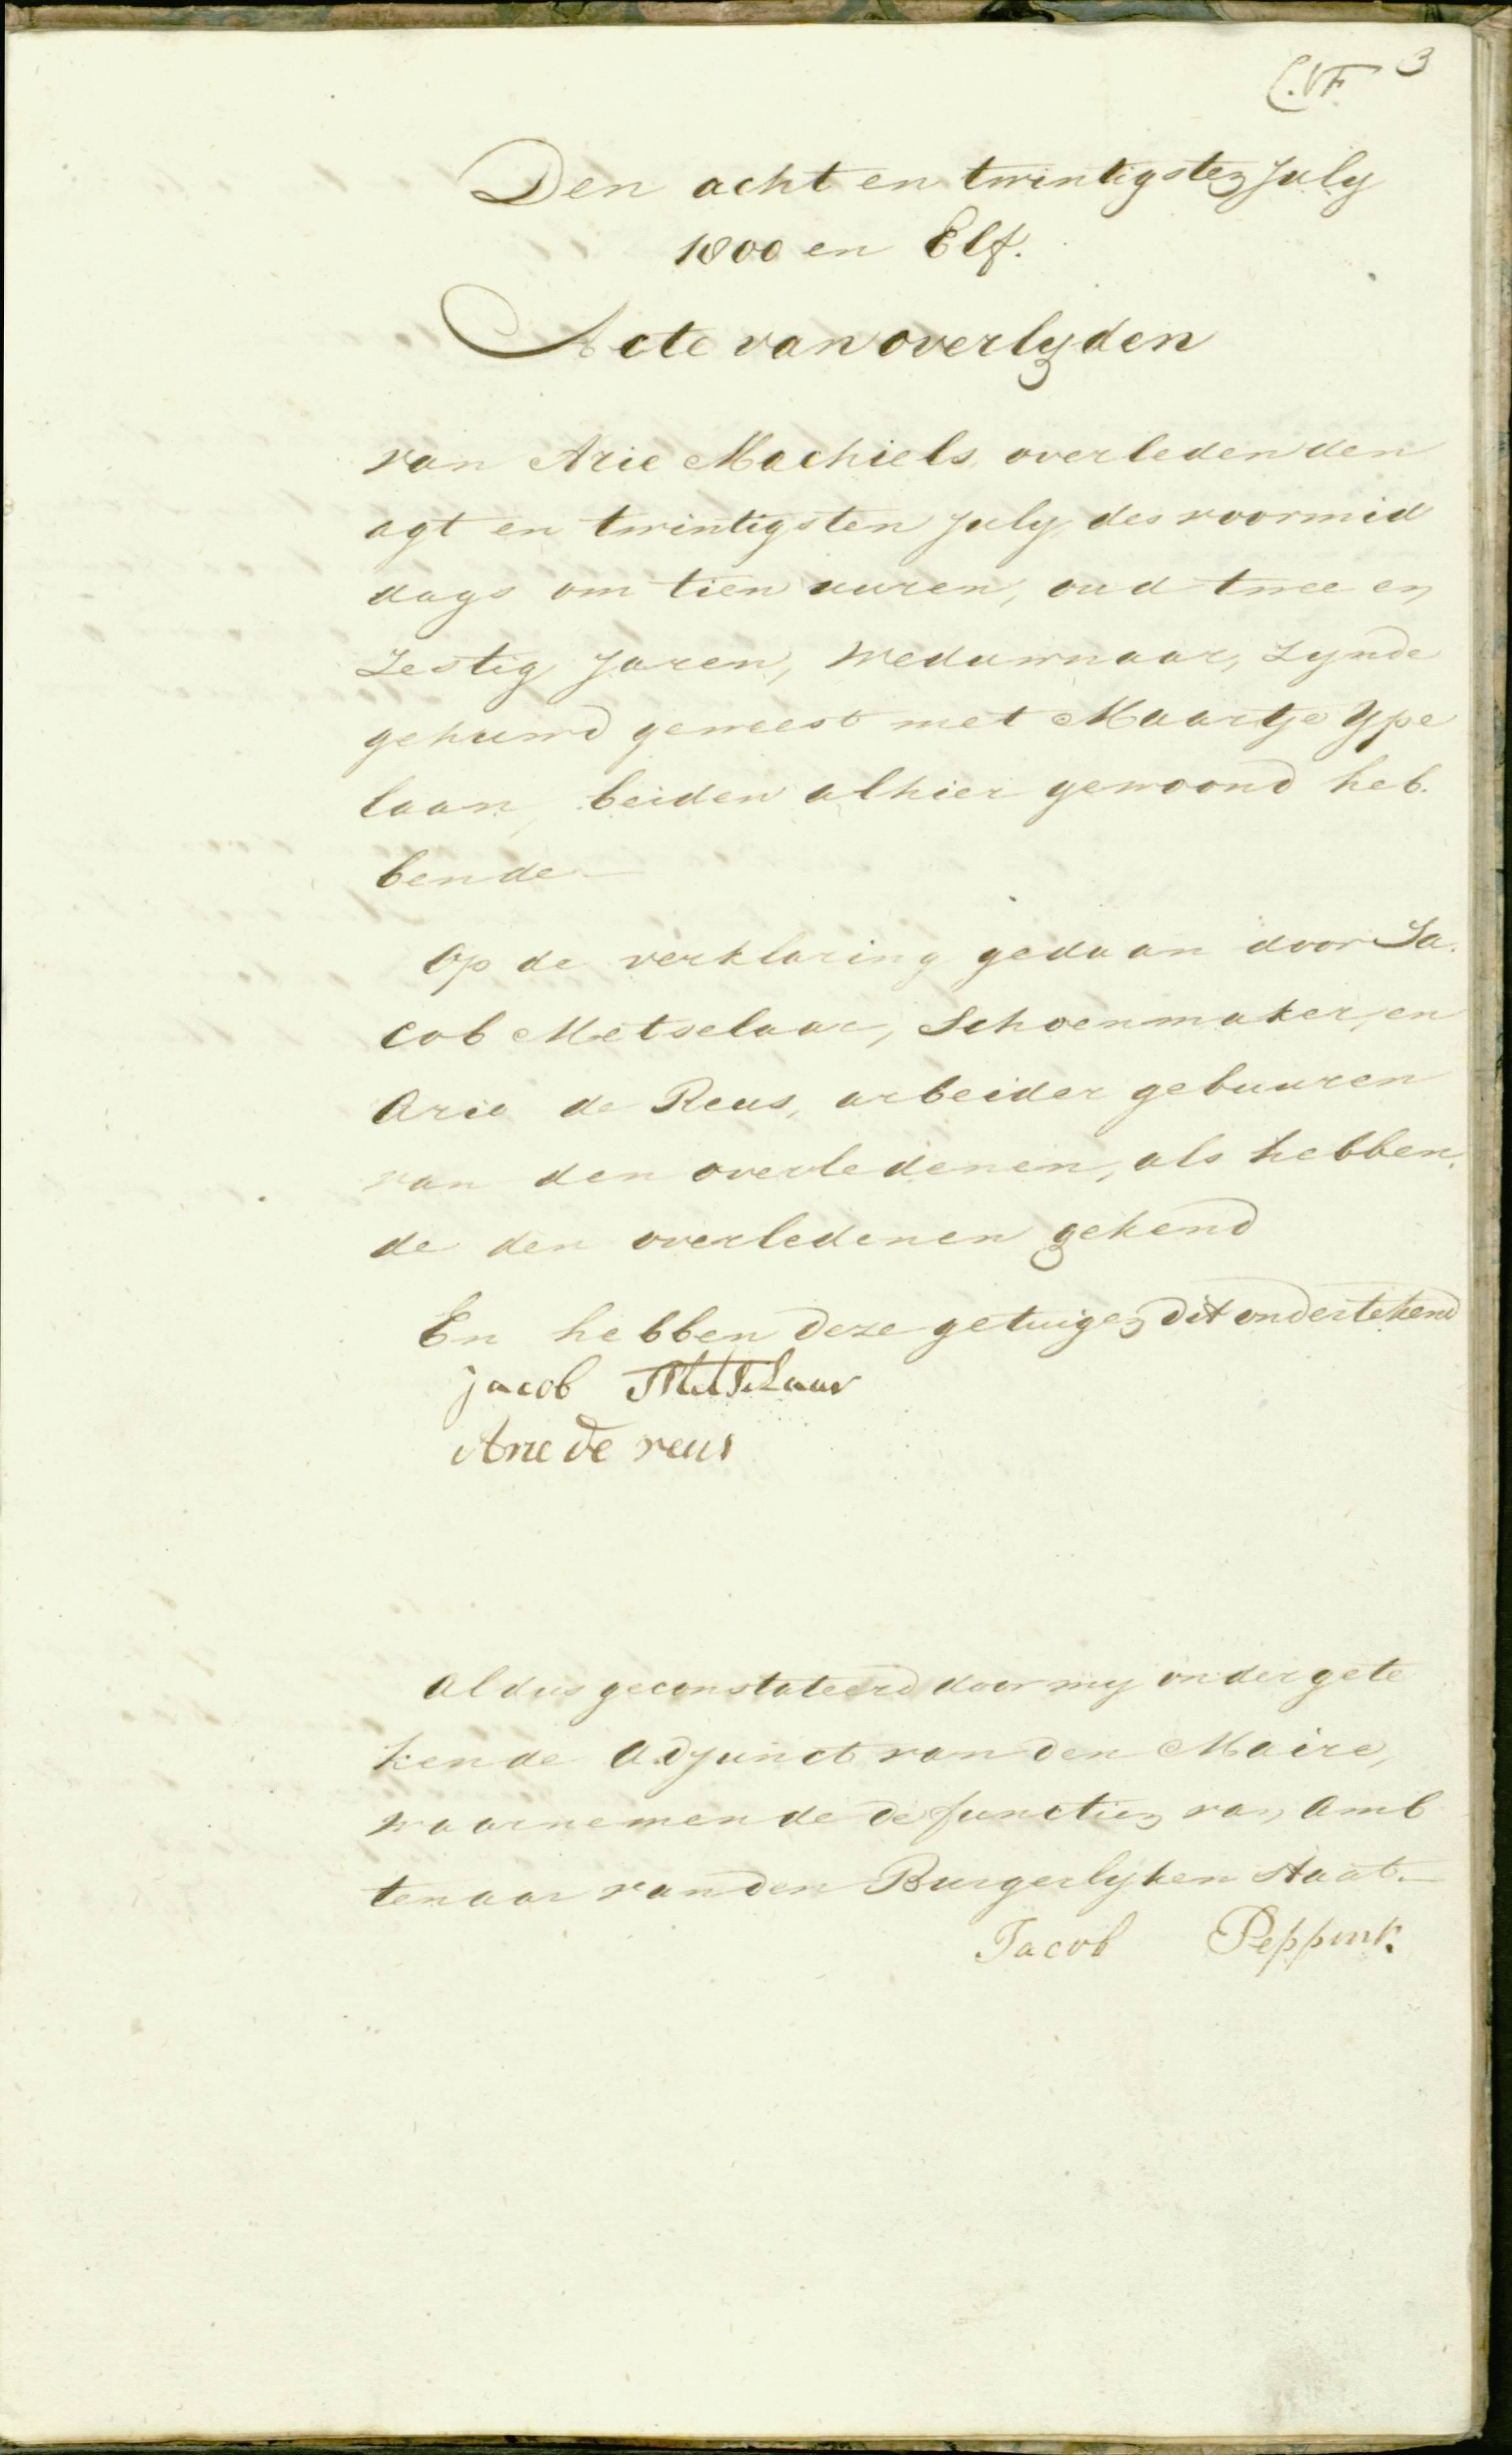 C.VF 3
Den acht en twintigsten July
1800 en Elf.
Acte van overlyden
van Arie Machiels, overleden den
agt en twintigsten July, des voormid
dags om tien uuren, oud twee en
Zestig Jaren, Weduwnaar, Zynde
gehuwd geweest met Maartje Ype
laan, beiden alhier gewoond heb.
bende
Op de verklaring gedaan door Ja.
cob Metselaar, Schoenmaker, en
Arie de Reus, arbeider gebuuren
van den overledenen, als hebben.
de den overledenen gekend
En hebben deze getuigen dit ondertekend
jacob Metselaar
Arie de reus
Aldus geconstateerd door my ondergete
kende Adjunct van den Maire,
waarnemende de functien van Amb
tenaar van den Burgerlyken Staat.
Jacob Peppink.